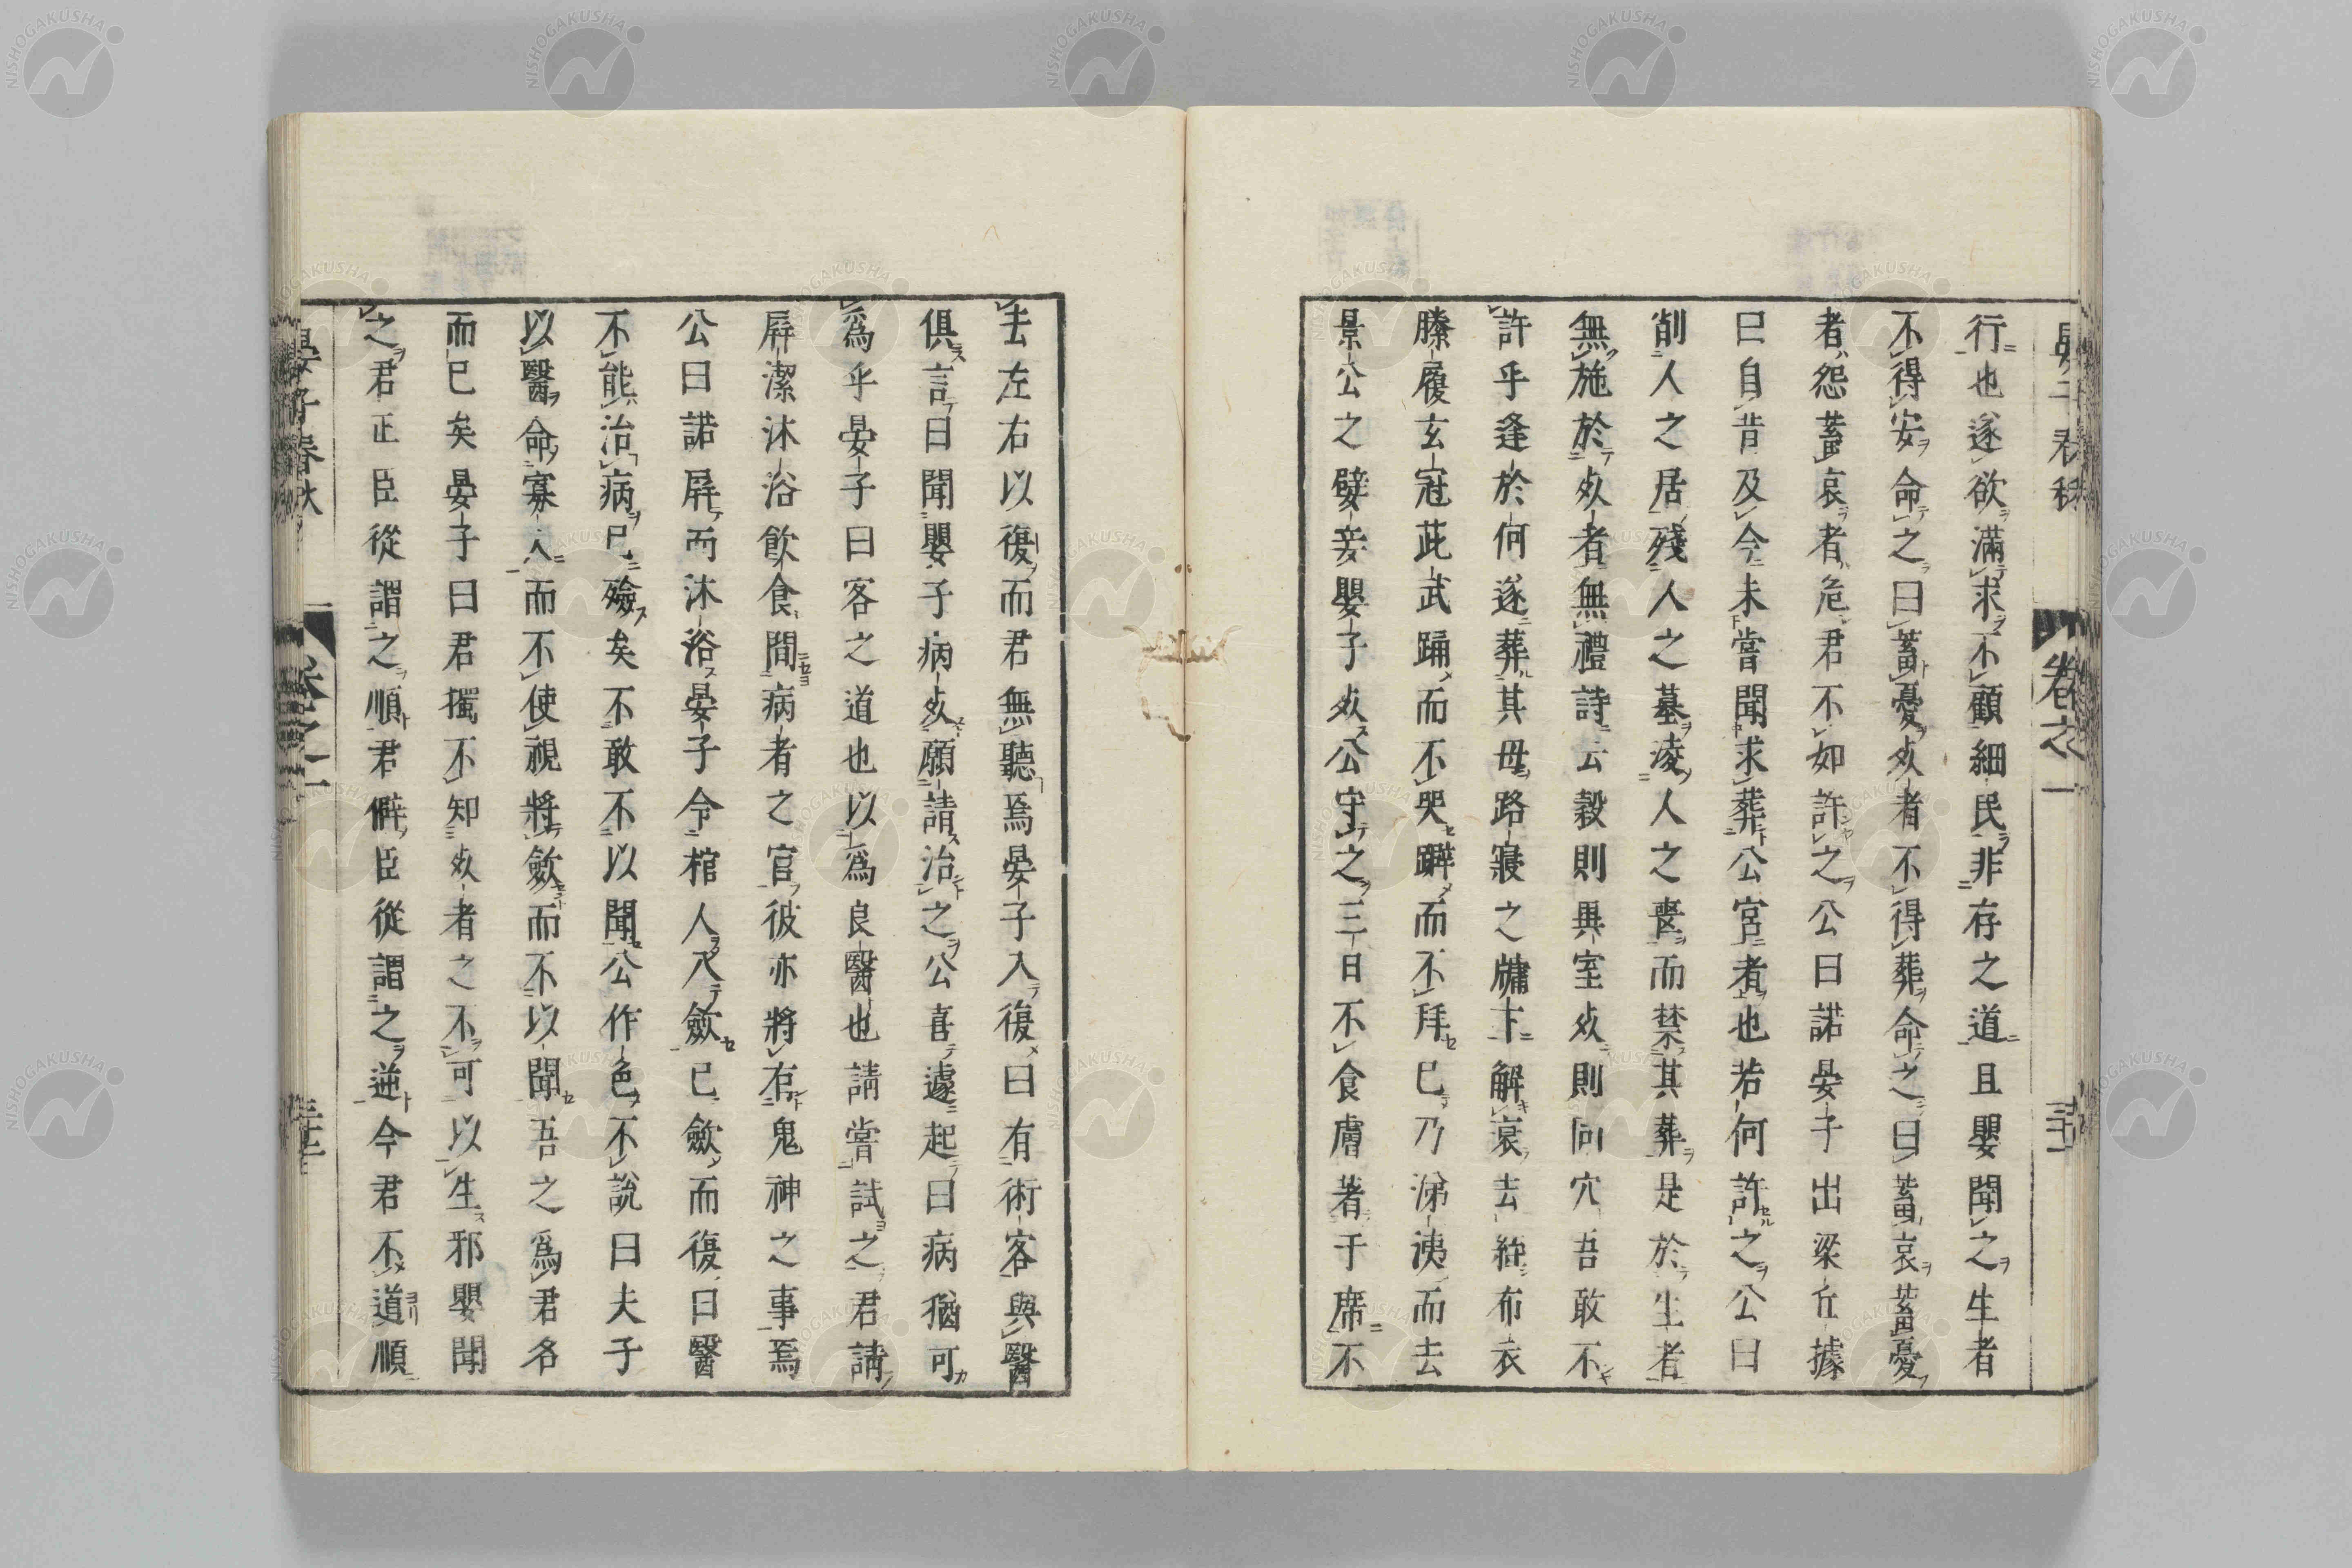 晏子春秋 卷之一
行也遂欲滿求不顧細民非存之道且嬰聞之生者
不得安命之曰蓄憂死者不得葬命之曰蓄哀蓄憂
者怨蓄哀者危君不如許之公曰諾晏子出梁丘據
曰自昔及今未嘗聞求葬公宮者也若何許之公曰
削人之居殘人之墓凌人之喪而禁其葬是於生者
無施於死者無禮詩云穀則異室死則同穴吾敢不
許乎逢於何遂葬其母路寢之牖下解衰去絰布衣
滕履玄冠茈武踊而不哭躃而不拜已乃涕洟而去
景公之嬖妾嬰子死公守之三日不食膚著于席不
去左右以復而君無聽焉晏子入復曰有術客與醫
俱言曰聞嬰子病死願請治之公喜遽起曰病猶可
爲乎晏子曰客之道也以爲良醫也請嘗試之君請
屏潔沐浴飲食間病者之宮彼亦將有鬼神之事焉
公曰諾屏而沐浴晏子令棺人入斂已斂而復曰醫
不能治病已殮矣不敢不以聞公作色不說曰夫子
以醫命寡人而不使視將斂而不以聞吾之爲君名
而已矣晏子曰君獨不知死者之不可以生邪嬰聞
之君正臣從謂之順君僻臣從謂之逆今君不道順
晏子春秋 卷之一
NISHOGAKUSHA